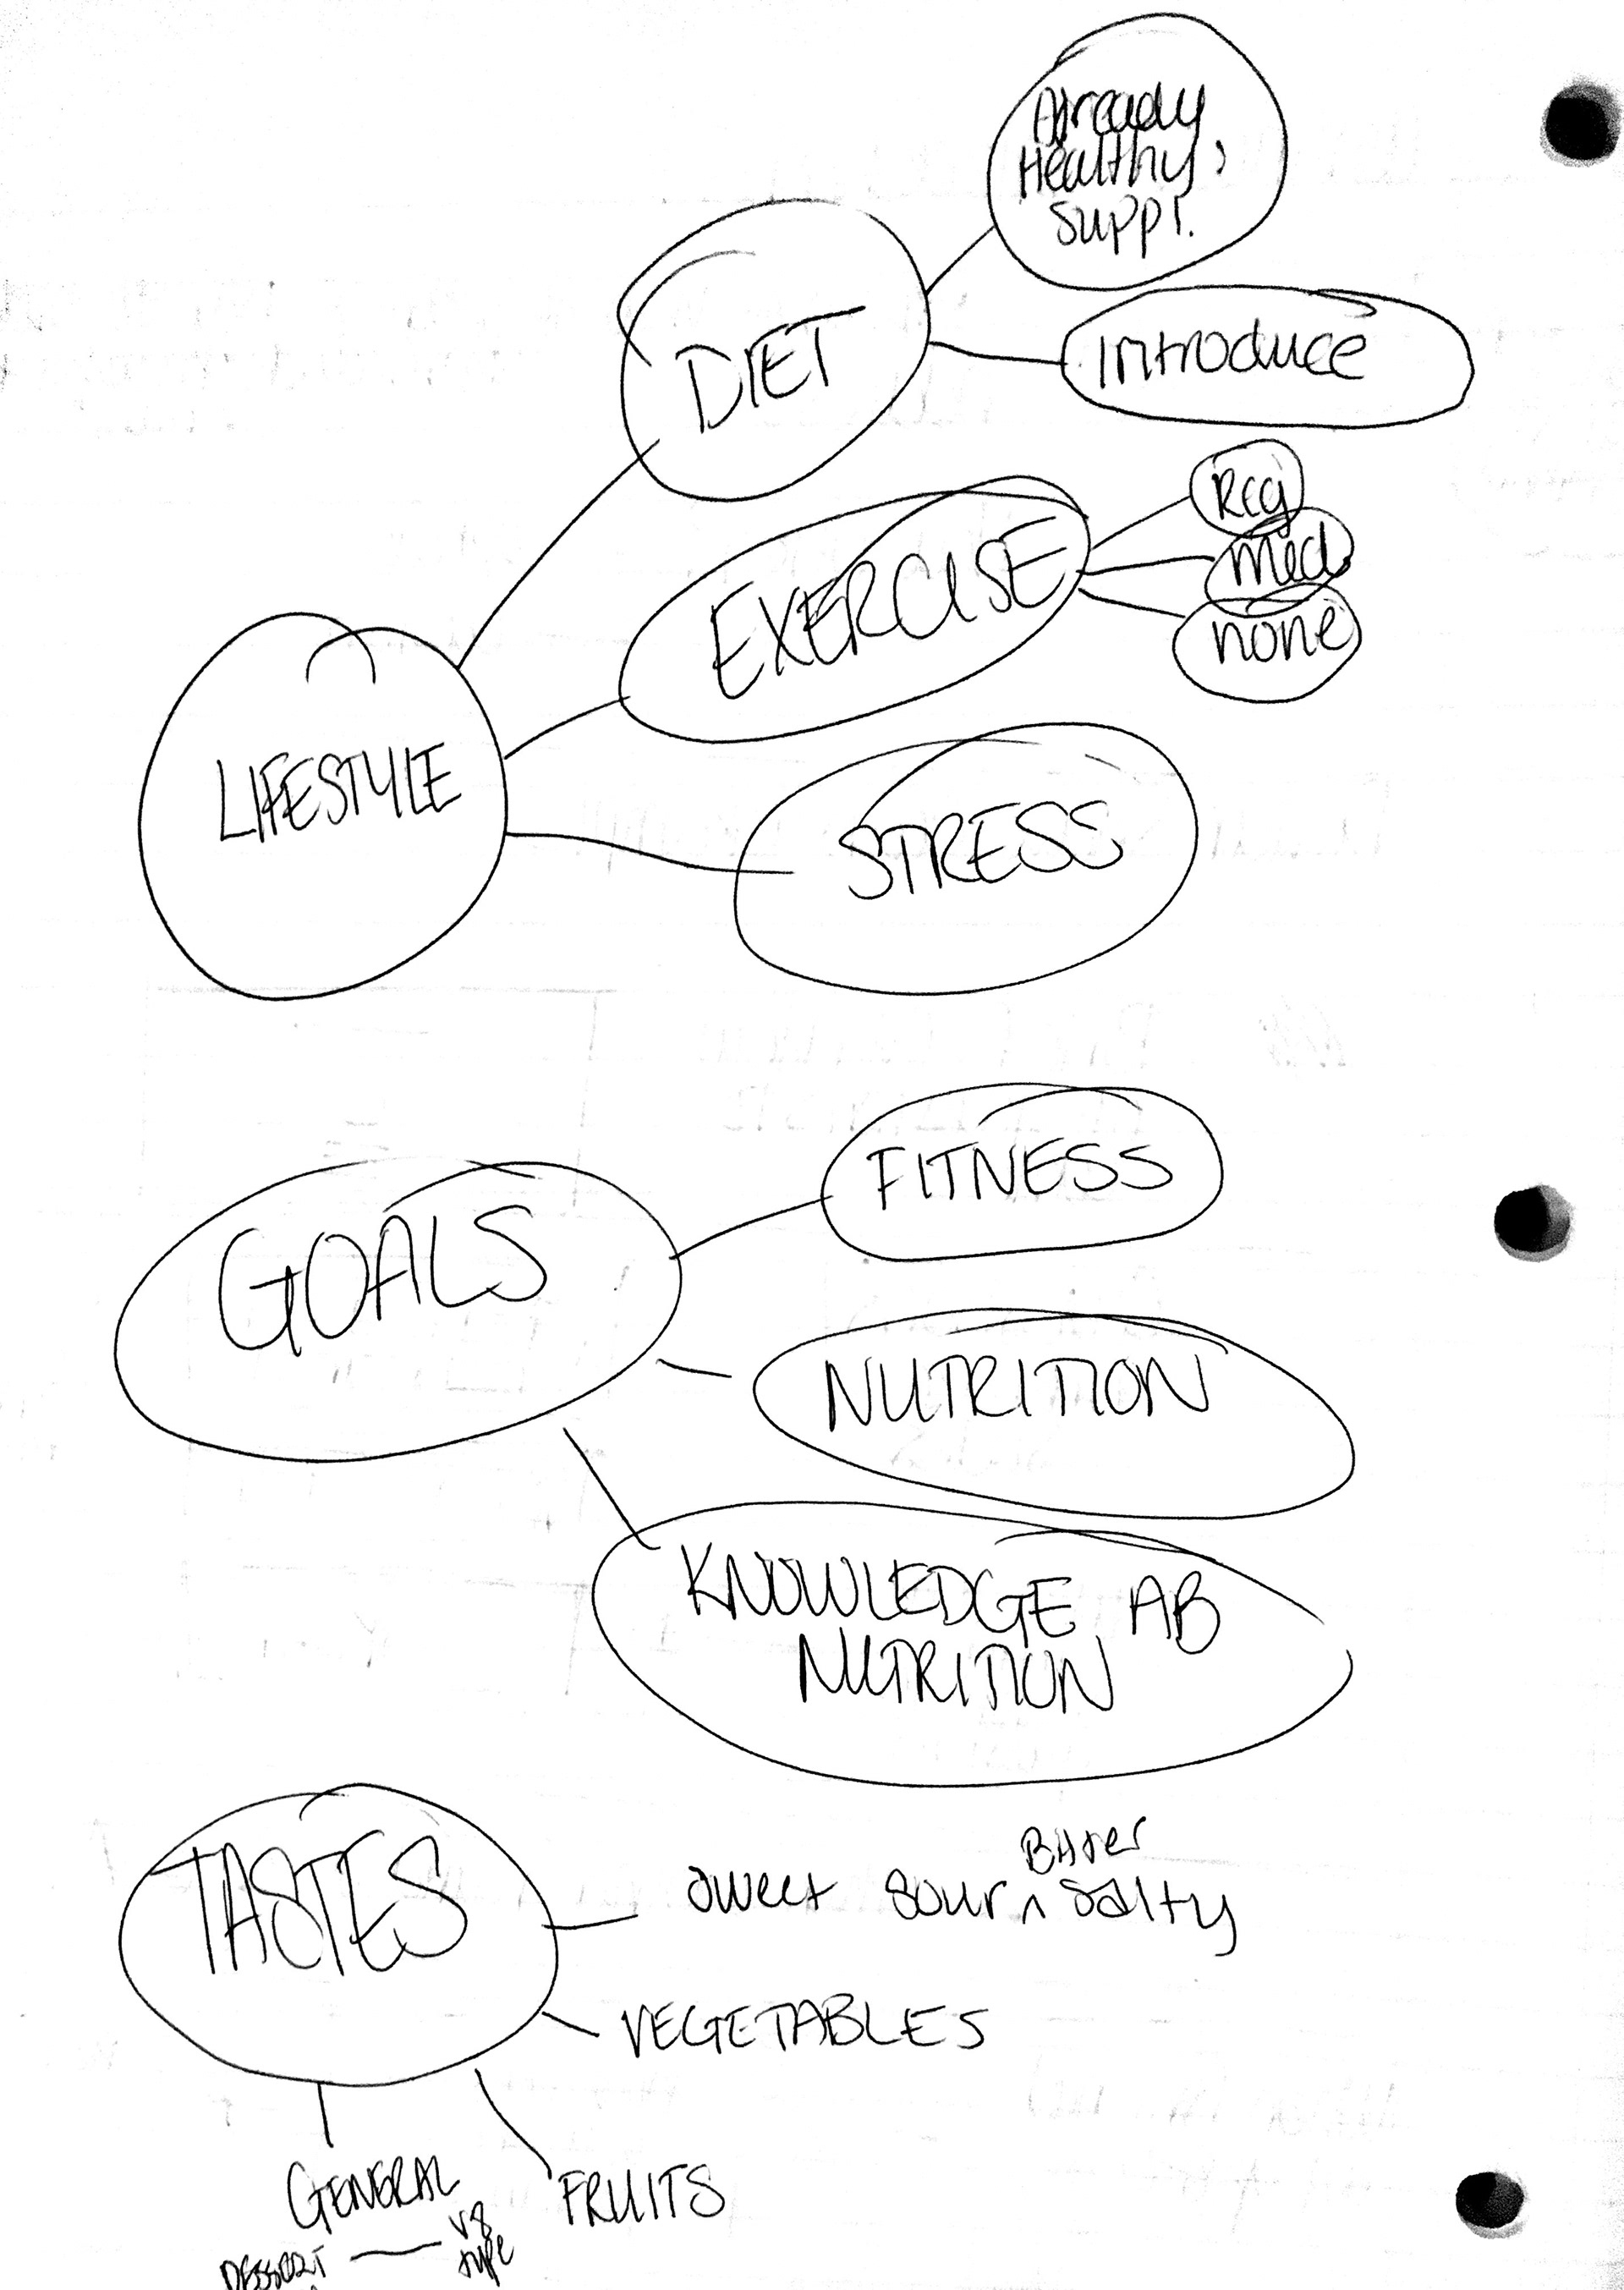 Already
Healthy,
suppl.
DIET
Introduce
Reg
med
none
EXERCISE
LIFESTYLE
STRESS
FITNESS
GOALS
NUTRITION
KNOWLEDGE AB
NUTRITION
TASTES
Bitter
sweet sour ^ salty
VEGETABLES
GENERAL
FRUITS
DESSERT — V8
type